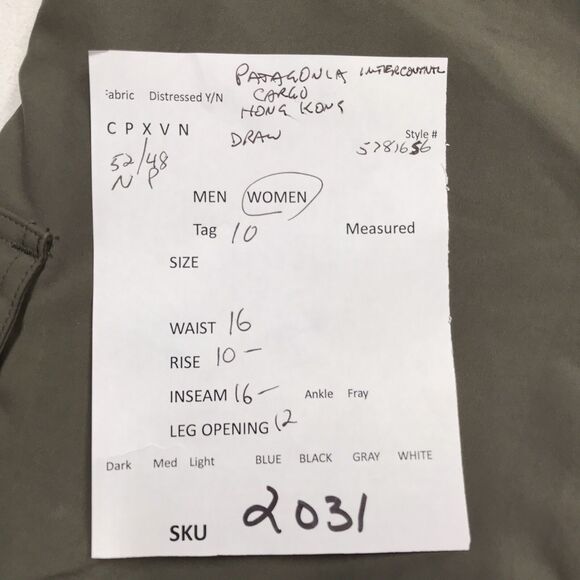 PATAGONIA INTERCONTNTL
Fabric Distressed Y/N CARGO
HONG KONG
C P X V N DRAW Style #
52/48 57816S6
N P
MEN WOMEN
Tag 10 Measured
SIZE
WAIST 16
RISE 10 -
INSEAM 16 - Ankle Fray
LEG OPENING 12
Dark Med Light BLUE BLACK GRAY WHITE
SKU 2031